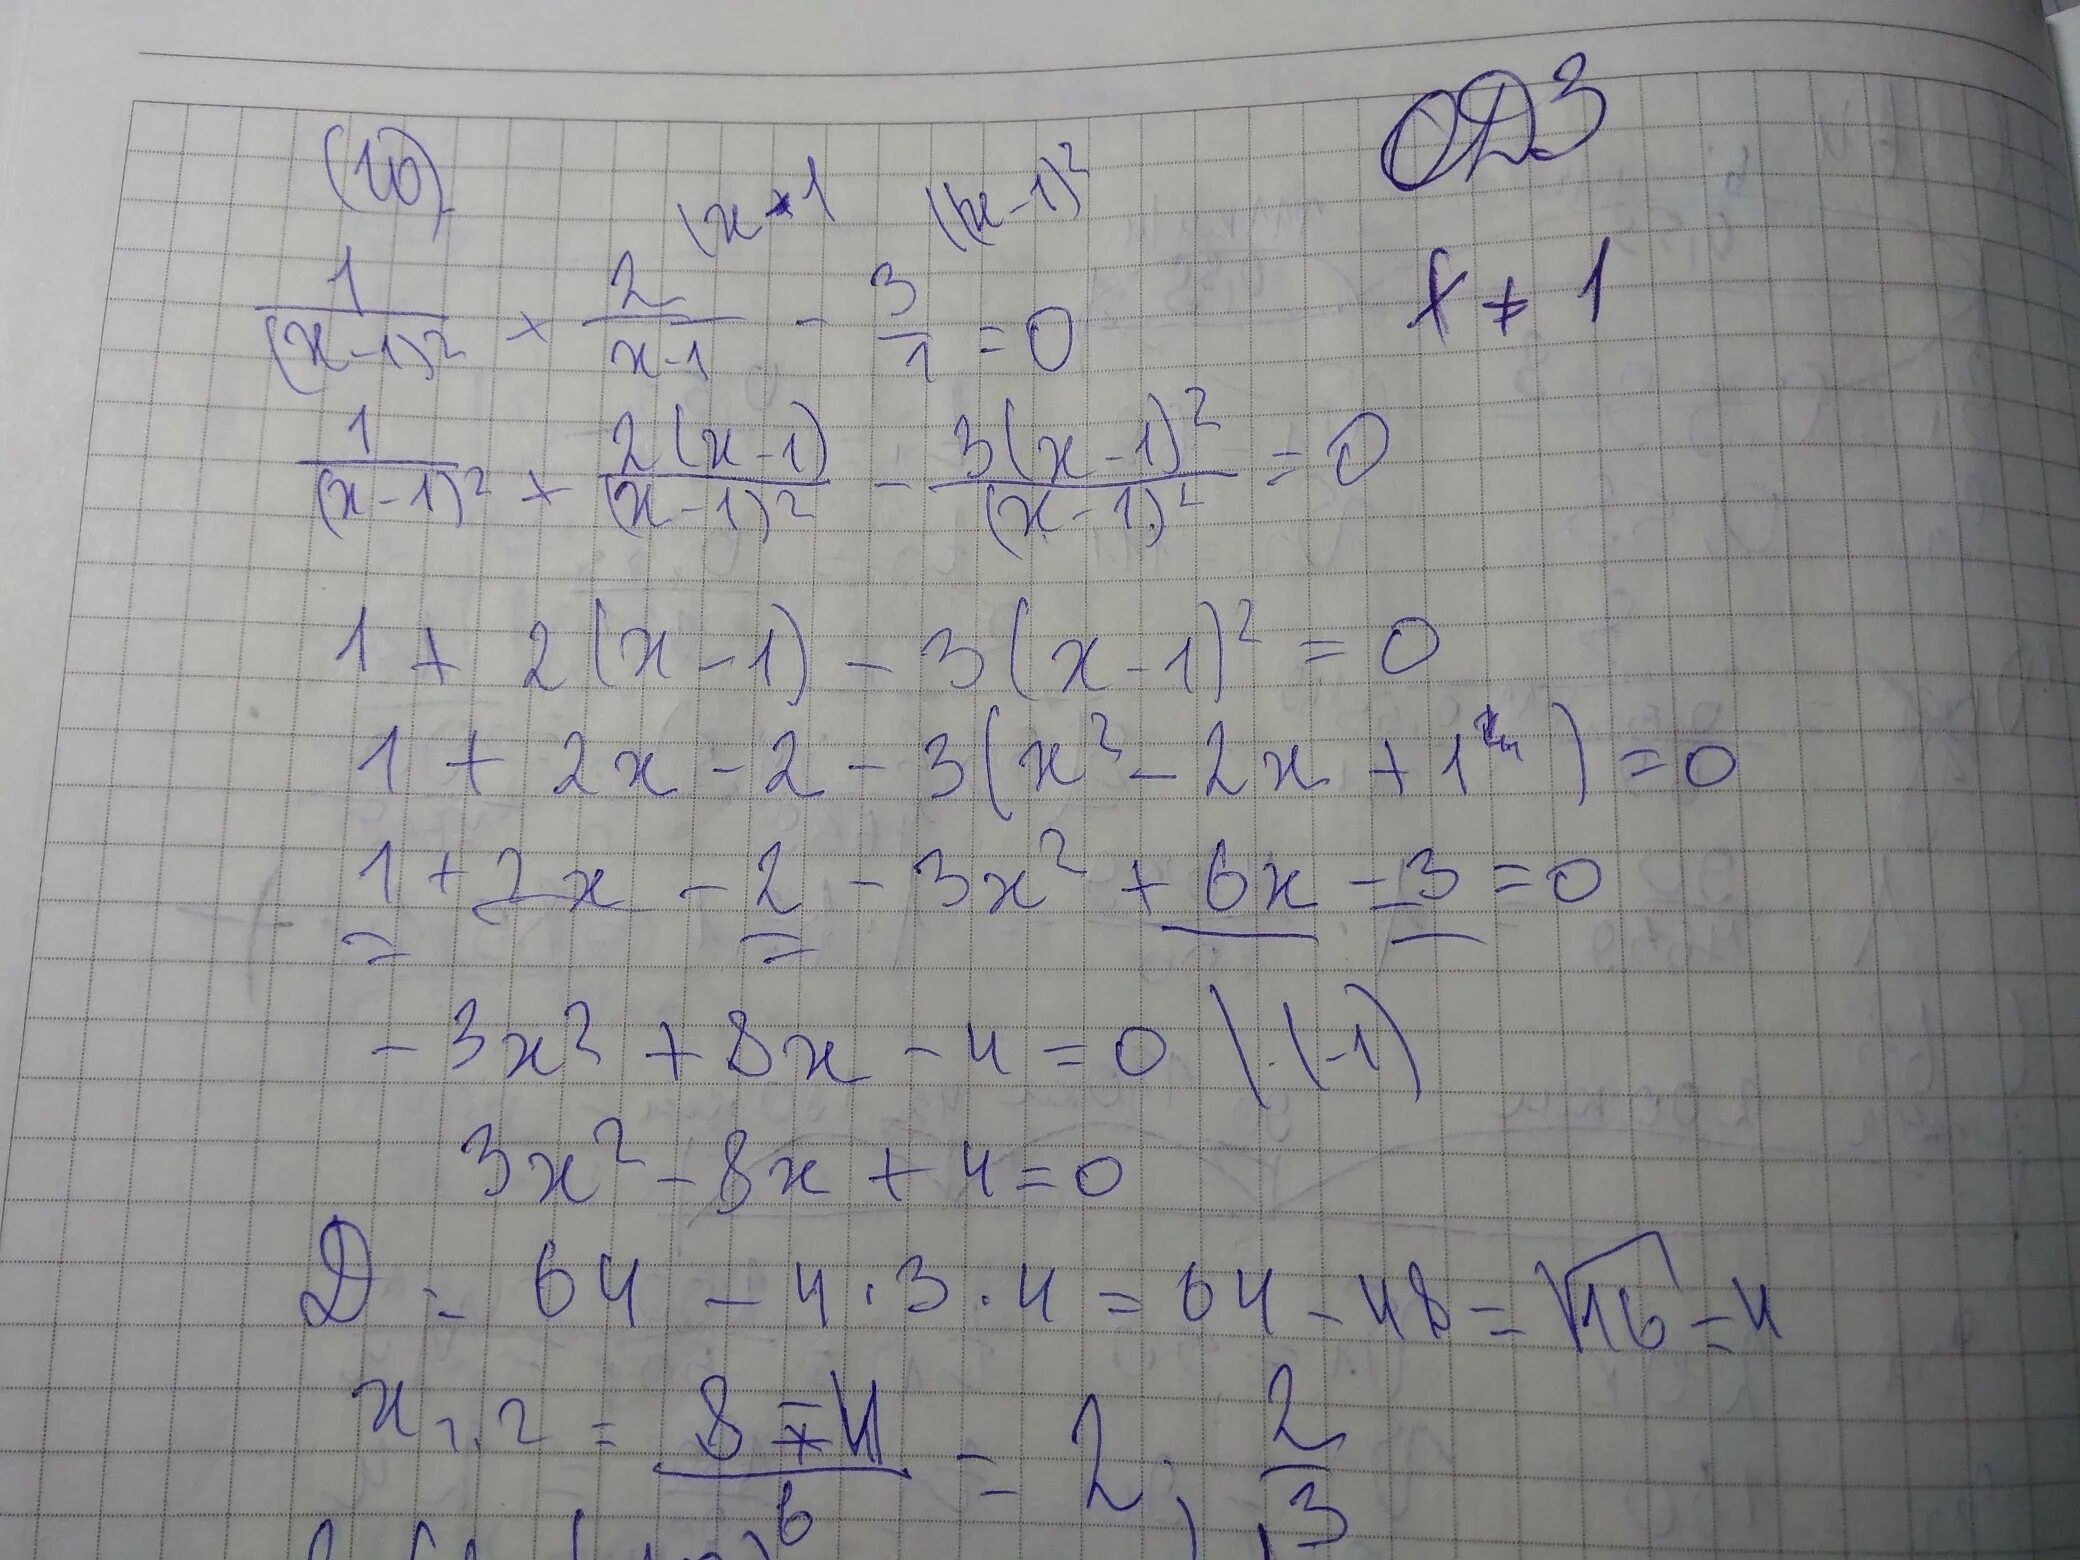 (10)
ОДЗ
(x-1 ((x-1)²
x ≠ 1
1/(x-1)² + 2/(x-1) - 3/1 = 0
1/(x-1)² + 2(x-1)/(x-1)² - 3(x-1)²/(x-1)² = 0
1 + 2(x-1) - 3(x-1)² = 0
1 + 2x - 2 - 3(x² - 2x + 1) = 0
1 + 2x - 2 - 3x² + 6x - 3 = 0
-3x² + 8x - 4 = 0 |·(-1)
3x² - 8x + 4 = 0
D = 64 - 4·3·4 = 64 - 48 = √16 = 4
x₁,₂ = (8 ∓ 4)/6 = 2; 2/3